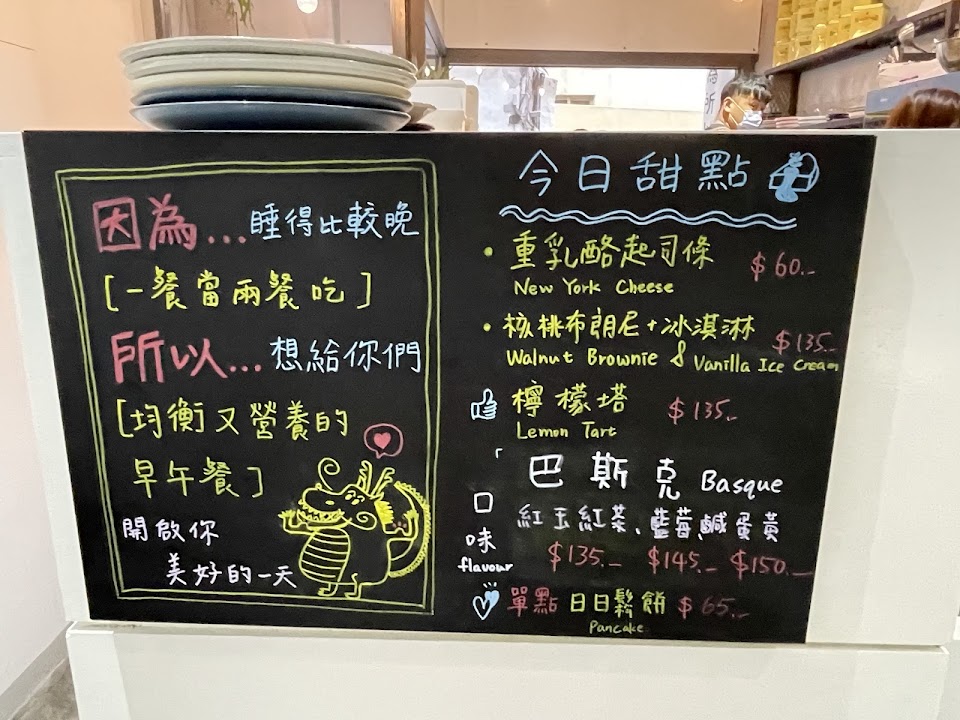 因為...睡得比較晚
[一餐當兩餐吃]
所以...想給你們
[均衡又營養的
早午餐]
開啟你
美好的一天
今日甜點
• 重乳酪起司條 $60.-
New York Cheese
• 核桃布朗尼+冰淇淋 $135.-
Walnut Brownie & Vanilla Ice Cream
檸檬塔 $135.-
Lemon Tart
「巴斯克 Basque
口味
flavour
紅玉紅茶、藍莓、鹹蛋黃
$135.- $145.- $150.-
單點 日日鬆餅 $65.-
Pancake